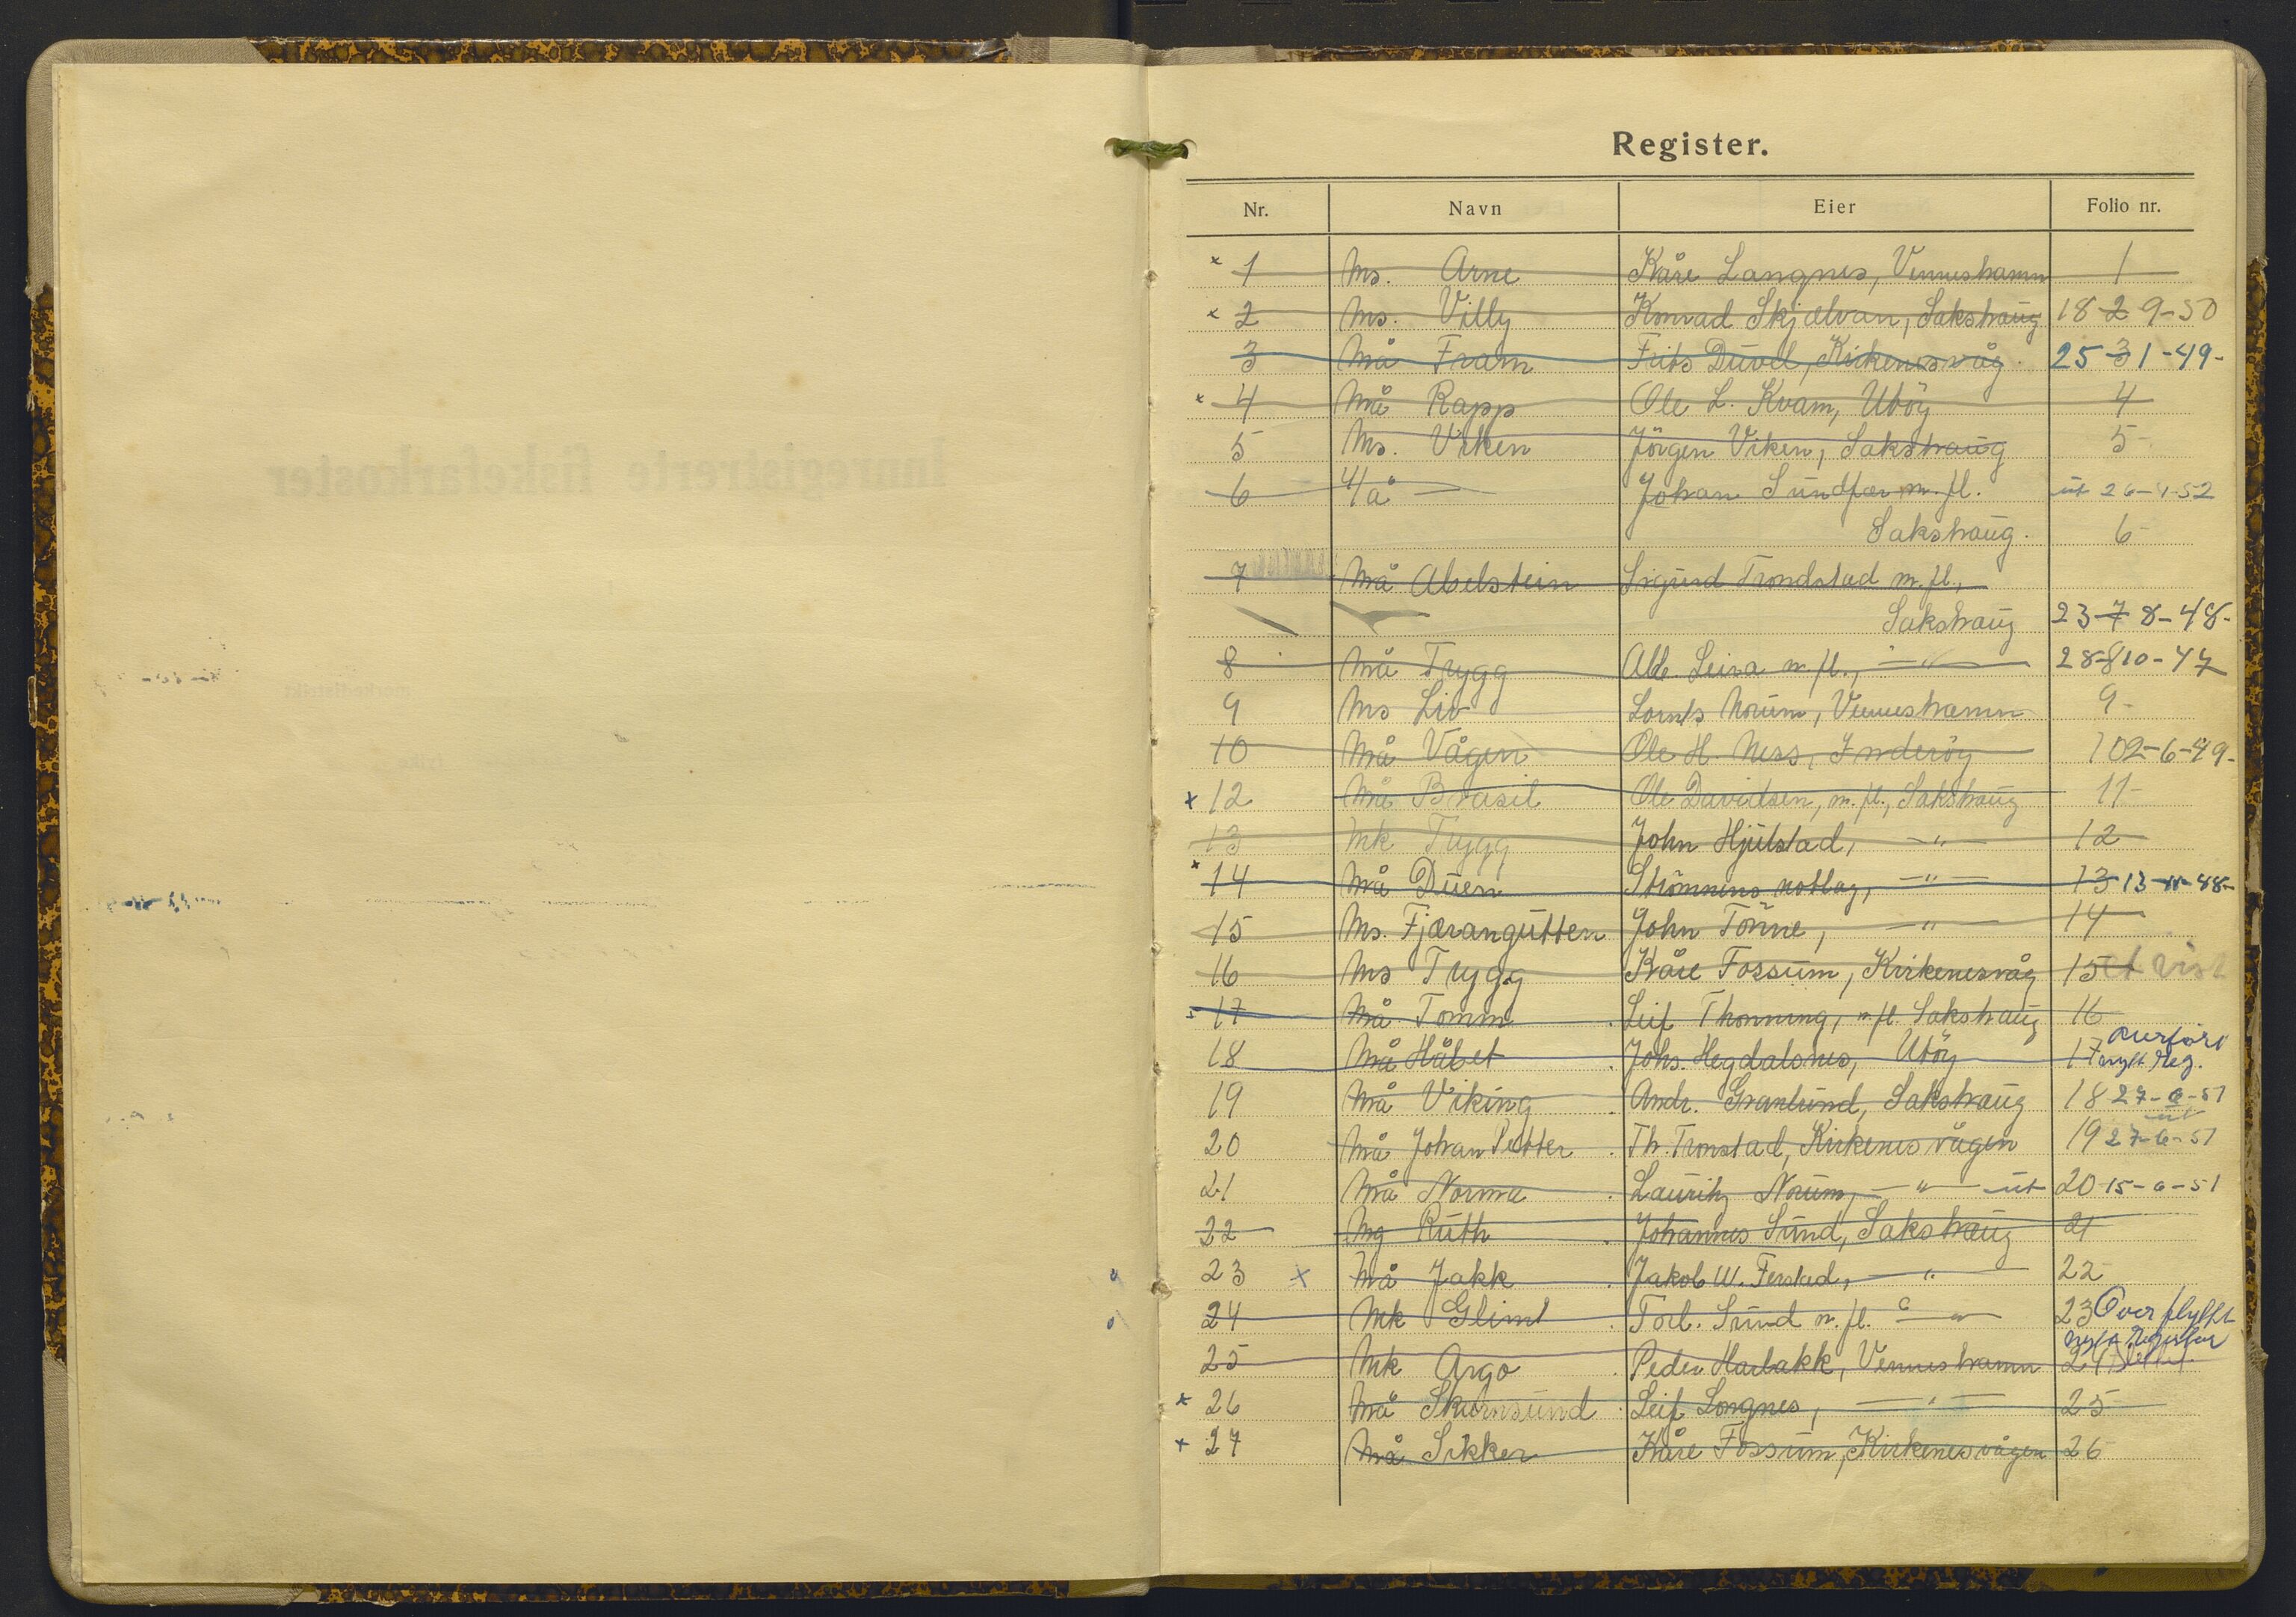 Register.
Nr. Navn Eier Folio nr.
× 1 Ms. Arne Kåre Langnes, Venneshamn 1
× 2 Ms. Villy Konrad Skjelvan, Sakshaug 18-2 9-50
3 Må Fram Frits Düvel, Kirkenesvåg. 25-3 1-49-
× 4 Må Rapp Ole L. Kvam, Utöy 4
5 Ms. Viken Jörgen Viken, Sakshaug 5-
6 U/å — Johan Sundfær m. fl. ut 26-4-52
Sakshaug. 6-
7 Må Abelstein Sigurd Trondstad m. fl.,
Sakshaug 23-7 8-48-
8 Må Trygg Alb. Leira m. fl., —"— 28-8 10-47
9 Ms Liv Lornts Norum, Venneshamn 9-
10 Må Vågen Ole H. Ness, Inderöy 10 2-6-49-
× 12 Må Brasil Ole Davidsen, m. fl., Sakshaug 11-
13 Mk Trygg John Hjulstad, —"— 12
× 14 Må Duen Strömnens notlag, —"— 13 13-11-48-
15 Ms. Fjærangutten John Tönne, —"— 14
16 Ms Trygg Kåre Fossum, Kirkenesvåg 15
17 Må Tomm Leif Thonning, m fl. Sakshaug 16
18 Må Håbet Johs. Hegdalsnes, Utöy 17 overfört
nytt reg.
19 Må Viking Andr. Granlund, Sakshaug 18 27-6-51
ut
20 Må Johan Petter Th. Tronstad, Kirkenesvågen 19 27-6-51
21 Må Norma Lauritz Norum, —"— ut 20 15-6-51
22 Mg Ruth Johannes Sund, Sakshaug 21
23 × Må Jakk Jakob W. Ferstad, —"— 22
24 Mk Glimt Torl. Sund m. fl. —"— 23 Overflyttt
nytt Register
25 Mk Argo Peder Harbakk, Venneshamn 24 Slettet.
× 26 Må Skarnsund Leif Longnes, —"— 25
× 27 Må Sikker Kåre Fossum, Kirkenesvågen 26